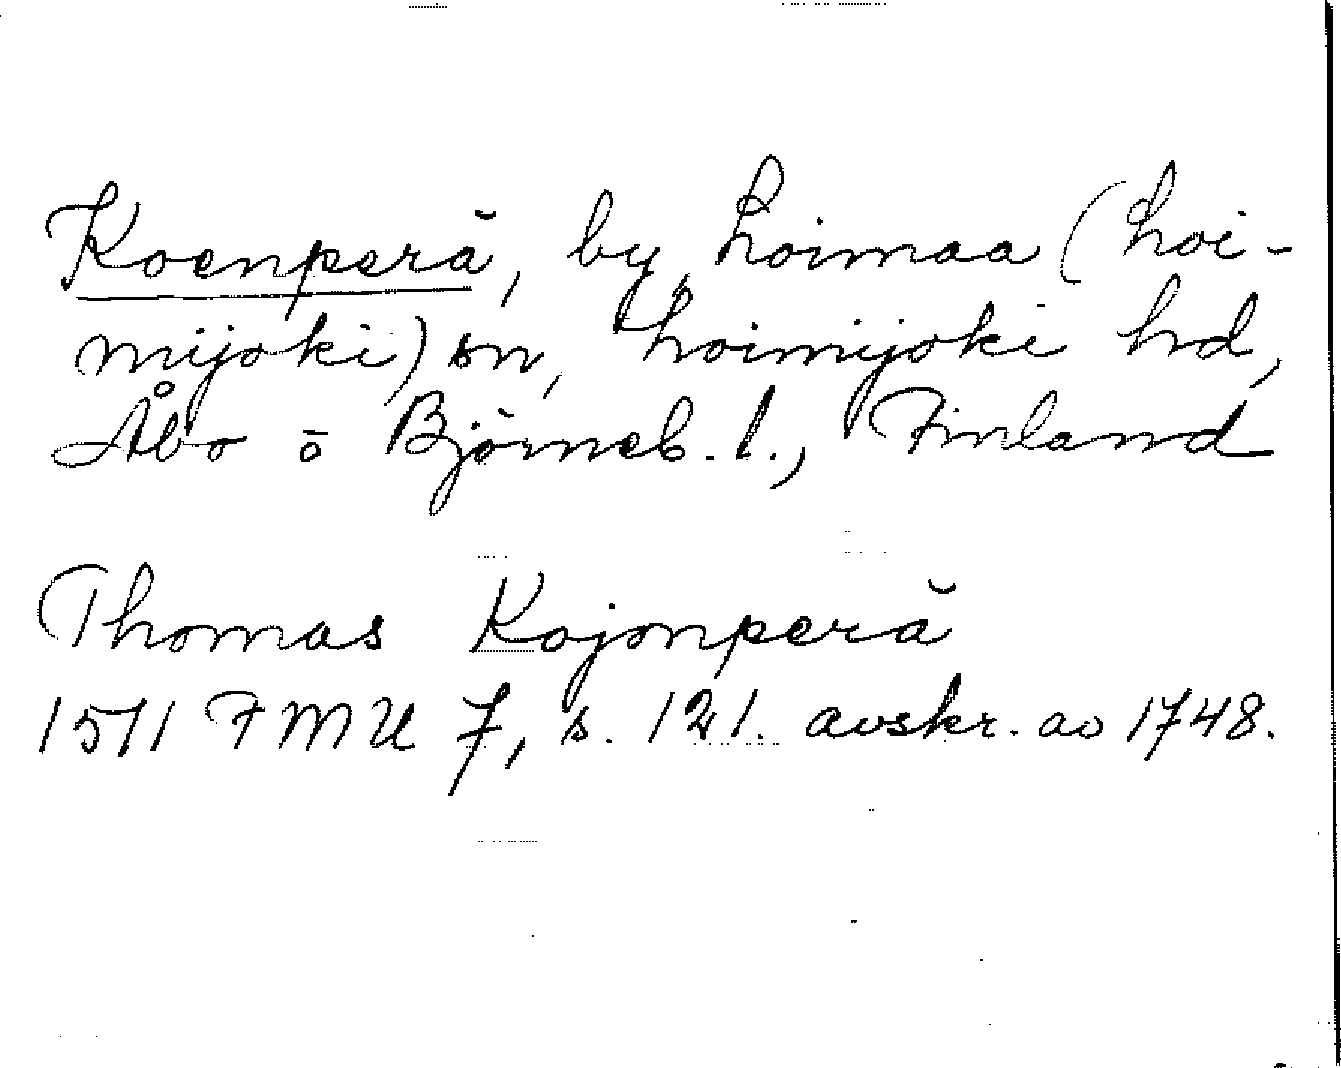 Koenperä, by, Loimaa (Loi-
mijoki) sn, Loimijoki hd,
Åbo o Björneb. l., Finland
Thomas Kojonperä
1571 FMU 7, s. 121. avskr. av 1748.